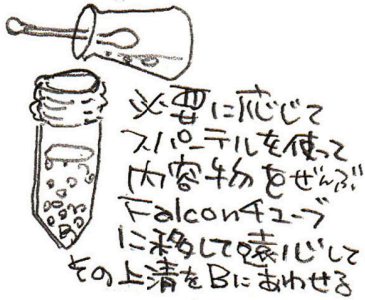 必要に応じて
スパーテルを使って
内容物をぜんぶ
Falconチューブ
に移して遠心して
その上清をBにあわせる